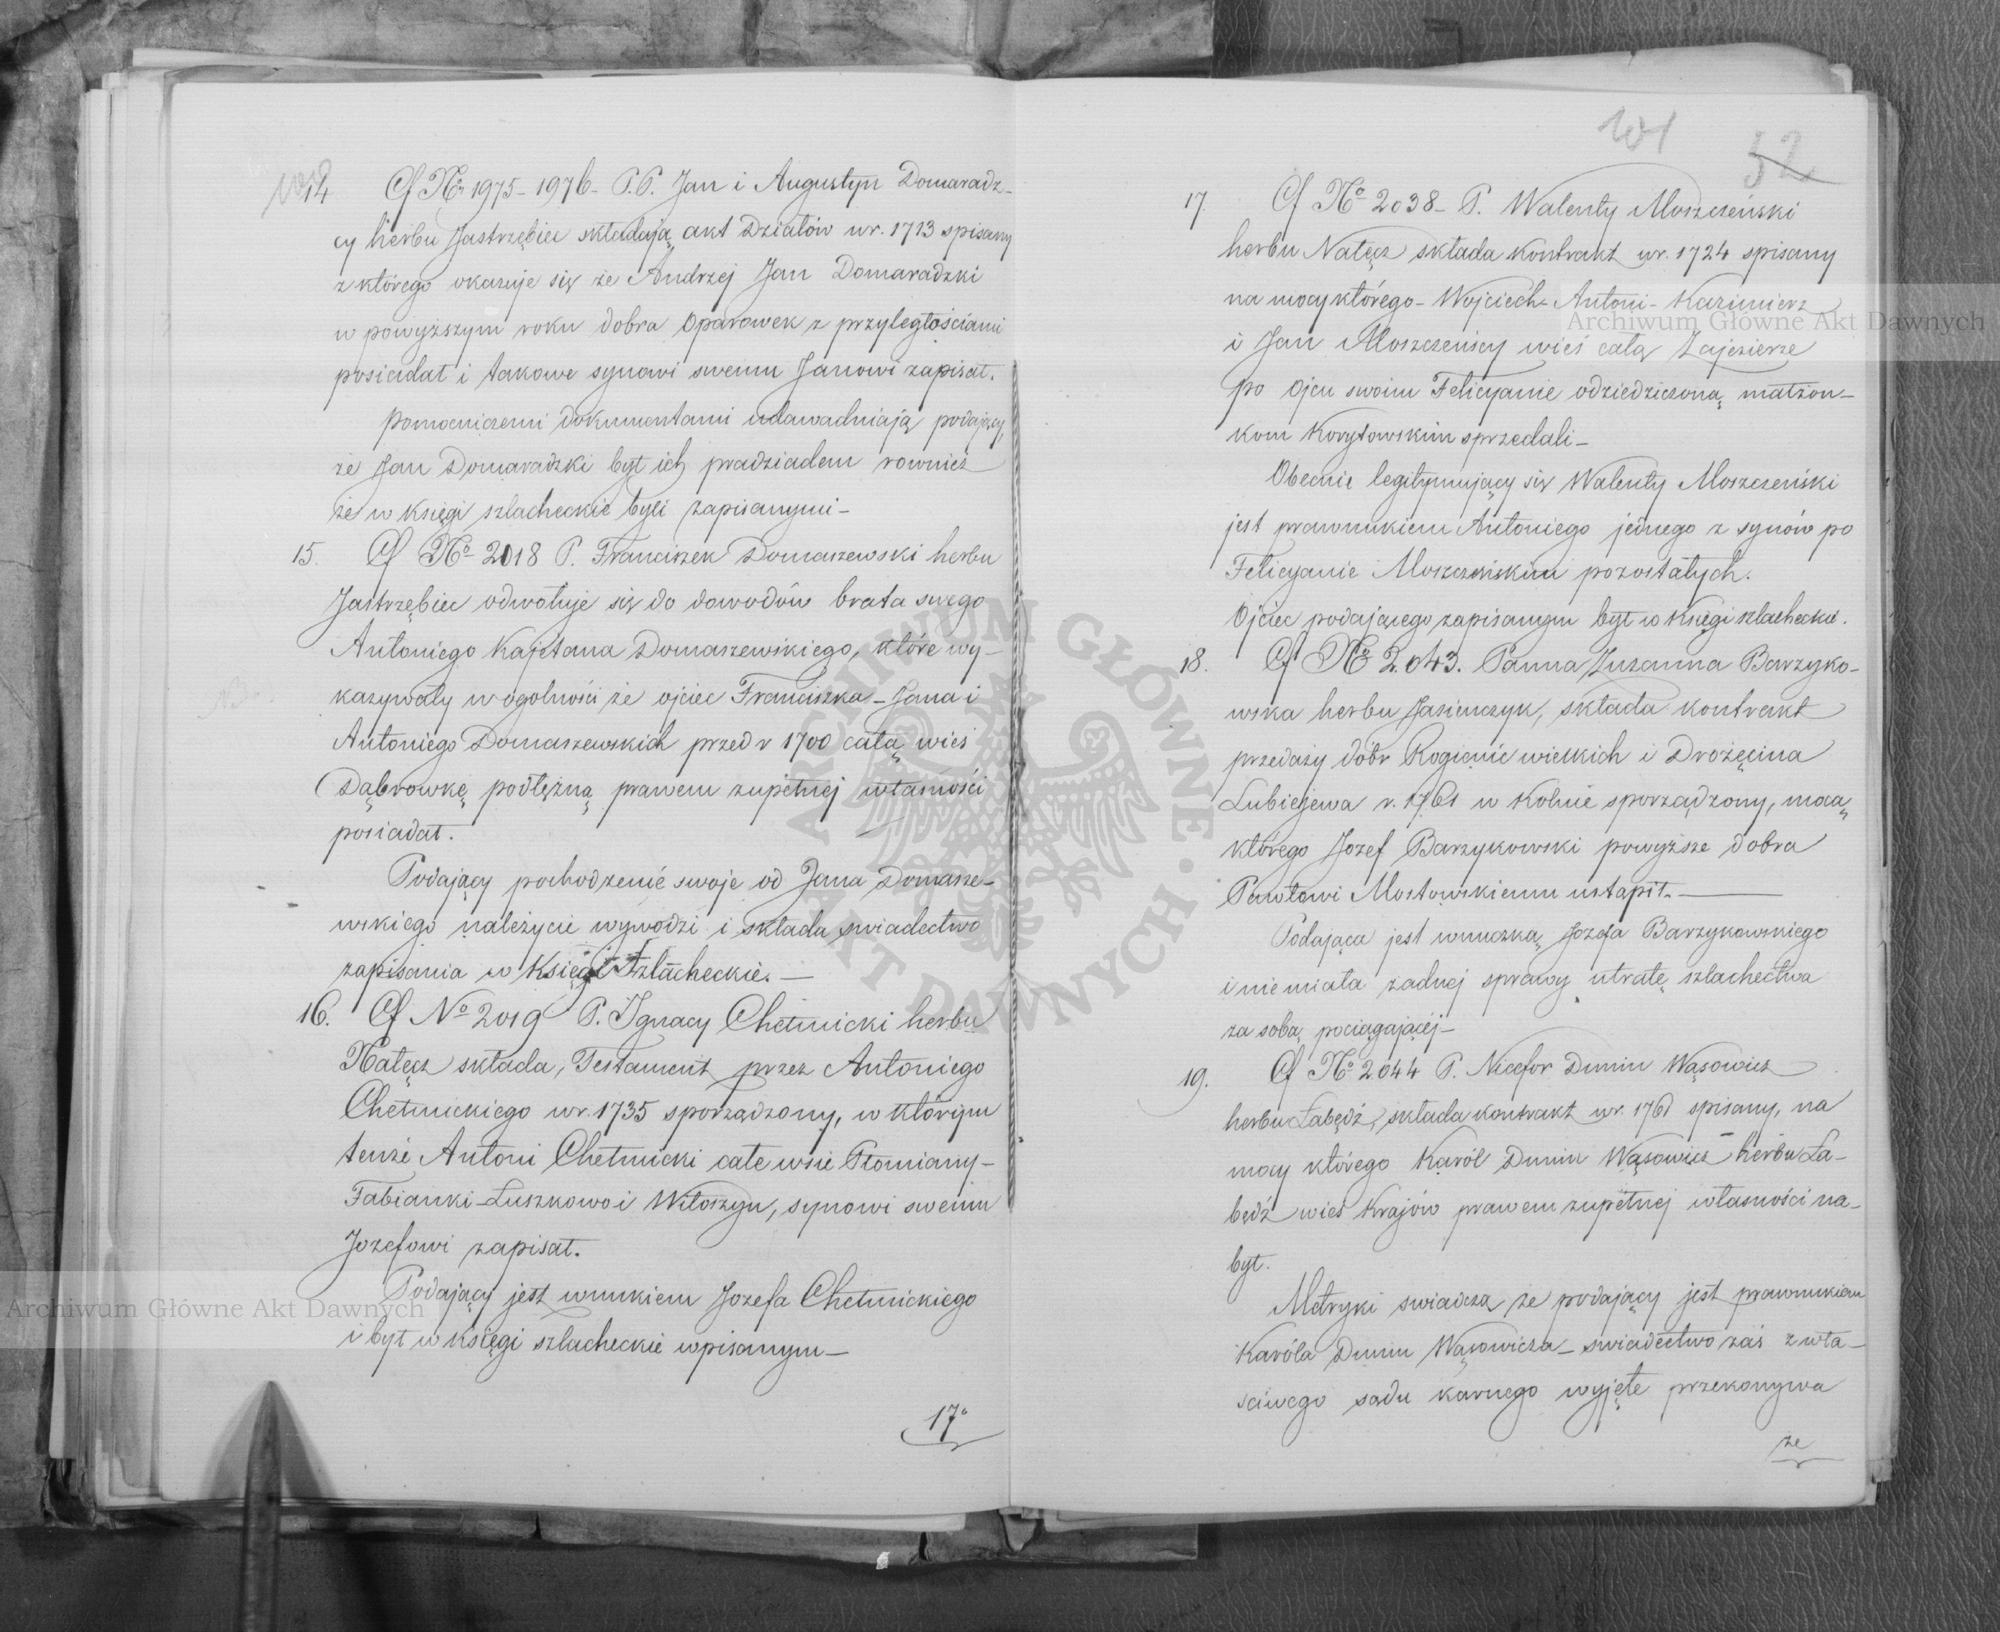 14 Cf Nr 1975 – 1976 – P.P. Jan i Augustyn Domaradz-
cy herbu Jastrzębiec składają akt Działów w r. 1713 spisany
z którego okazuje się że Andrzej Jan Domaradzki
w powyższym roku dobra Oparowek z przyległościami
posiadał i takowe synowi swemu Janowi zapisał.
Pomocniczemi dokumentami udawadniają podający,
że Jan Domaradzki był ich pradziadem rownież
że w księgi szlacheckie byli zapisanymi –
15. Cf No 2018 P. Franciszek Domaszewski herbu
Jastrzębiec odwołuje się do dowodów brata swego
Antoniego Kajetana Domaszewskiego, które wy-
kazywały w ogolności że ojciec Franciszka – Jana i
Antoniego Domaszewskich przed r 1700 całą wieś
Dąbrowkę podłężną prawem zupełnej własności
posiadał.
Podający pochodzenie swoje od Jana Domasze-
wskiego należycie wywodzi i składa swiadectwo
zapisania w Księgi Szlacheckie. –
16. Cf No 2019 P. Ignacy Chełmicki herbu
Nałęcz składa, Testament przez Antoniego
Chełmickiego w r. 1735 sporządzony, w którym
tenże Antoni Chełmicki całe wsie Płomiany –
Fabianki – Łuszkowo i Witoszyn, synowi swemu
Jozefowi zapisał.
Podający jest wnukiem Jozefa Chełmickiego
i był w księgi szlacheckie wpisanym –
17o
101 52
17. Cf No 2038 – P. Walenty Moszczeński
herbu Nałęcz składa kontrakt w r. 1724 spisany
na mocy którego – Wojciech – Antoni – Kazimierz
i Jan Moszczeńscy wieś całą Zajezierze
po Ojcu swoim Felicyanie odziedziczoną małżon-
kom Korytowskim sprzedali –
Obecnie legitymujący się Walenty Moszczeński
jest prawnukiem Antoniego jednego z synów po
Felicyanie Moszczeńskim pozostałych.
Ojciec podającego zapisanym był w Księgi szlacheckie.
18. Cf No 2043. Panna Zuzanna Barzyko-
wska herbu Jasieńczyk, składa kontrakt
przedaży dóbr Rogienic wielkich i Drożęcina
Lubiejewa r. 1761 w Kolnie sporządzony, mocą
którego Jozef Barzykowski powyższe dobra
Pawłowi Mostowskiemu ustąpił. –
Podająca jest wnuczką Jozefa Barzykowskiego
i niemiała żadnej sprawy utratę szlachectwa
za sobą pociągającej –
19. Cf No 2044 P. Nicefor Dunin Wąsowicz
herbu Łabędź, składa kontrakt w r. 1761 spisany, na
mocy którego Karól Dunin Wąsowicz herbu Ła-
będź wieś Krajów prawem zupełnej własności na-
był.
Metryki swiadczą że podający jest prawnukiem
Karóla Dunin Wąsowicza – swiadectwo zaś z wła-
sciwego sądu karnego wyjęte przekonywa
że
Archiwum Główne Akt Dawnych
Archiwum Główne Akt Dawnych
ARCHIWUM GŁÓWNE · AKT DAWNYCH ·